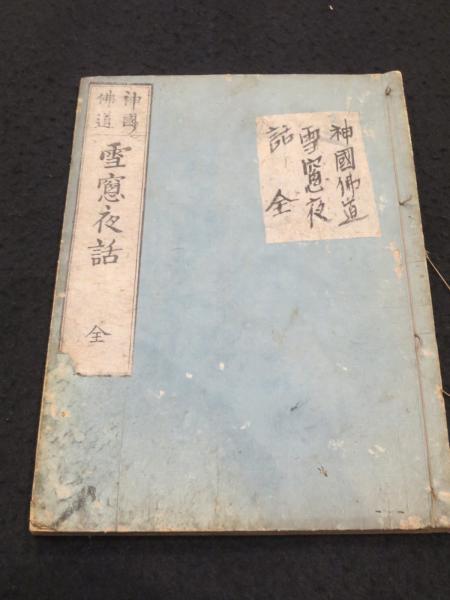 神國
佛道
雪窓夜話
全
神國佛道
雪窓夜
話 全